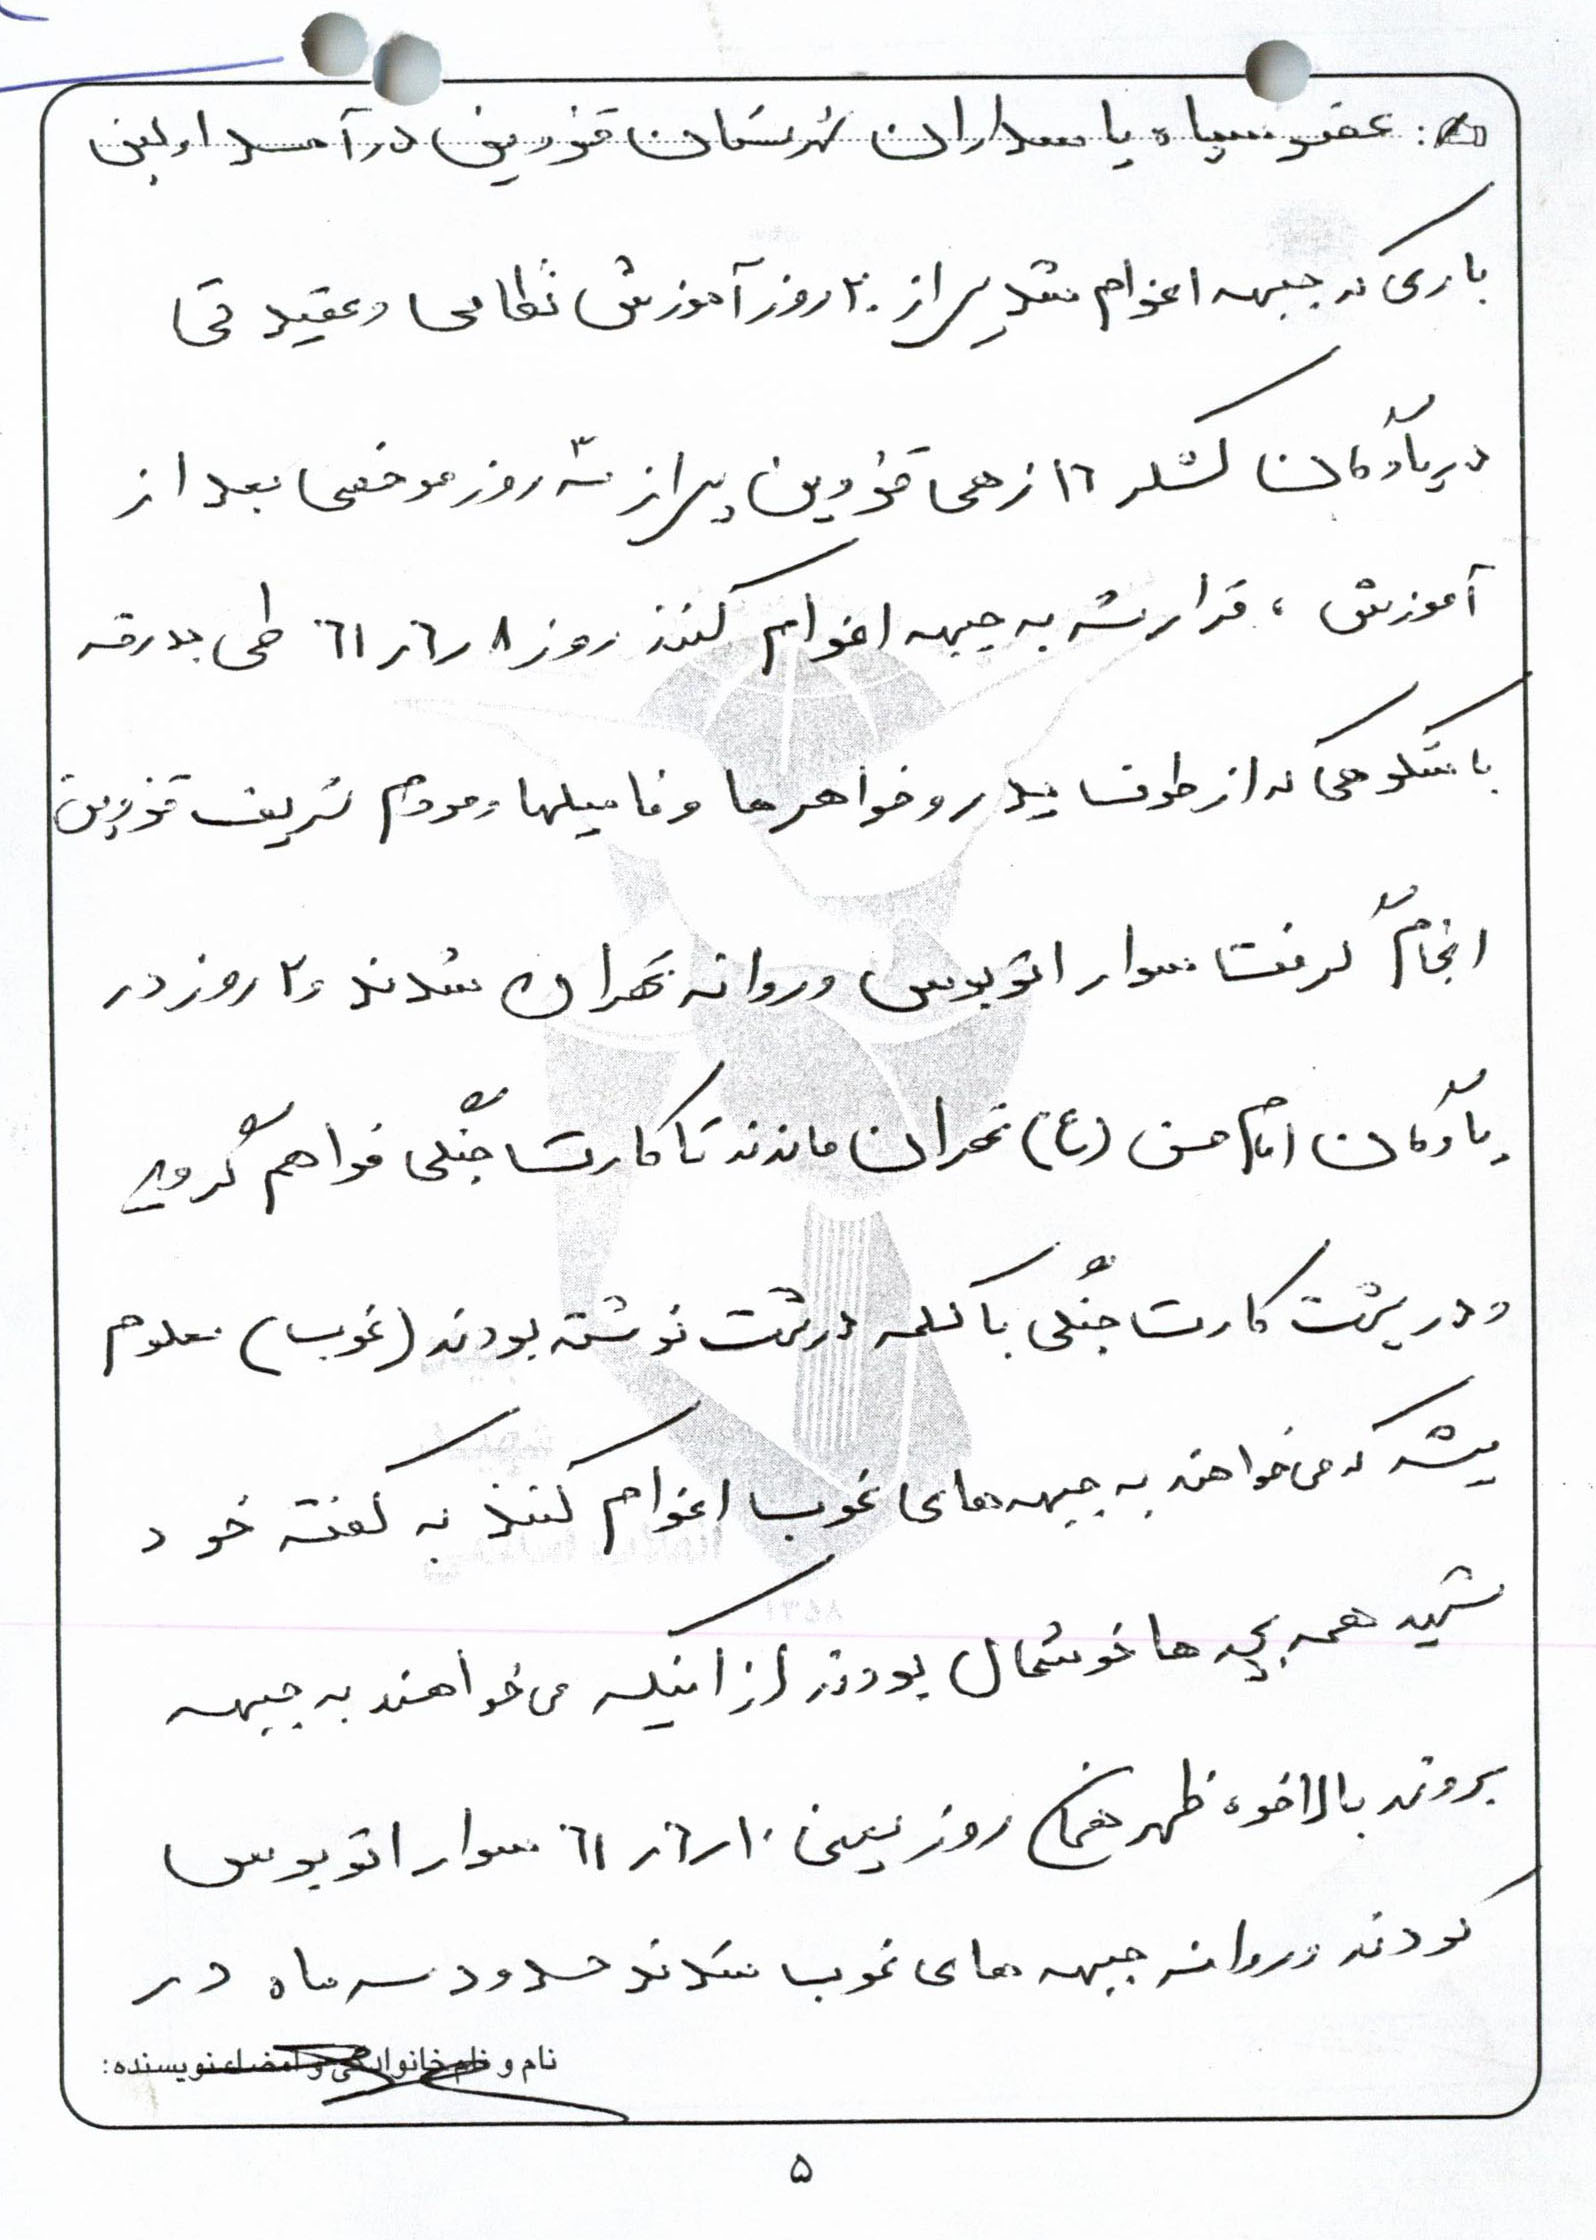 عضو سپاه پاسداران شهرستان قزوین درآمد اولین
باری که جبهه اغزام شد پس از ۲۰ روز آموزش نظامی و عقیدتی
در پادگان لشکر ۱۶ زرهی قزوین پس از سه روز مرخصی بعد از
آموزش ، قرار شد به جبهه اغزام کنند روز ۸ ر ۶ ر ۶۱ طی بدرقه
باشکوهی که از طرف پدر و خواهرها و فامیلها و مردم شریف قزوین
انجام گرفت سوار اتوبوس و روانه تهران شدند و ۲ روز در
پادگان امام حسن (ع) تهران ماندند تا کارت جنگی فراهم گردید
و در پشت کارت جنگی با کلمه درشت نوشته بودند (غرب) معلوم
میشد که می خواهند به جبهه های غرب اغزام کنند به گفته خود
شهید همه بچه ها خوشحال بودند از اینکه می خواهند به جبهه
بروند بالاخره ظهر همان روز یعنی ۱۰ ر ۶ ر ۶۱ سوار اتوبوس
کردند و روانه جبهه های غرب شدند حدود سه ماه در
نام و نام خانوادگی و امضاء نویسنده:
۵